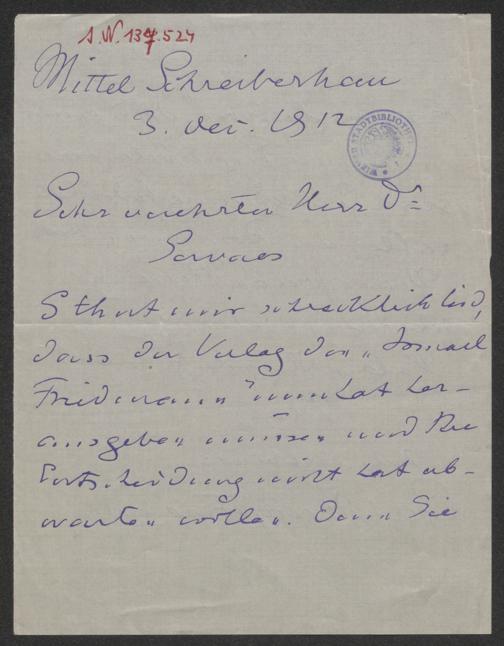 A.N. 137.524
Mittel Schreiberhau
3. Dez. 1912
WIENER STADTBIBLIOTHEK
Sehr verehrter Herr Dr
Servaes
S thut mir schrecklich leid,
dass der Verlag den „Ismael
Friedmann" nun hat her-
ausgeben müssen und Ihre
Entscheidung nicht hat ab-
warten wollen. Denn Sie